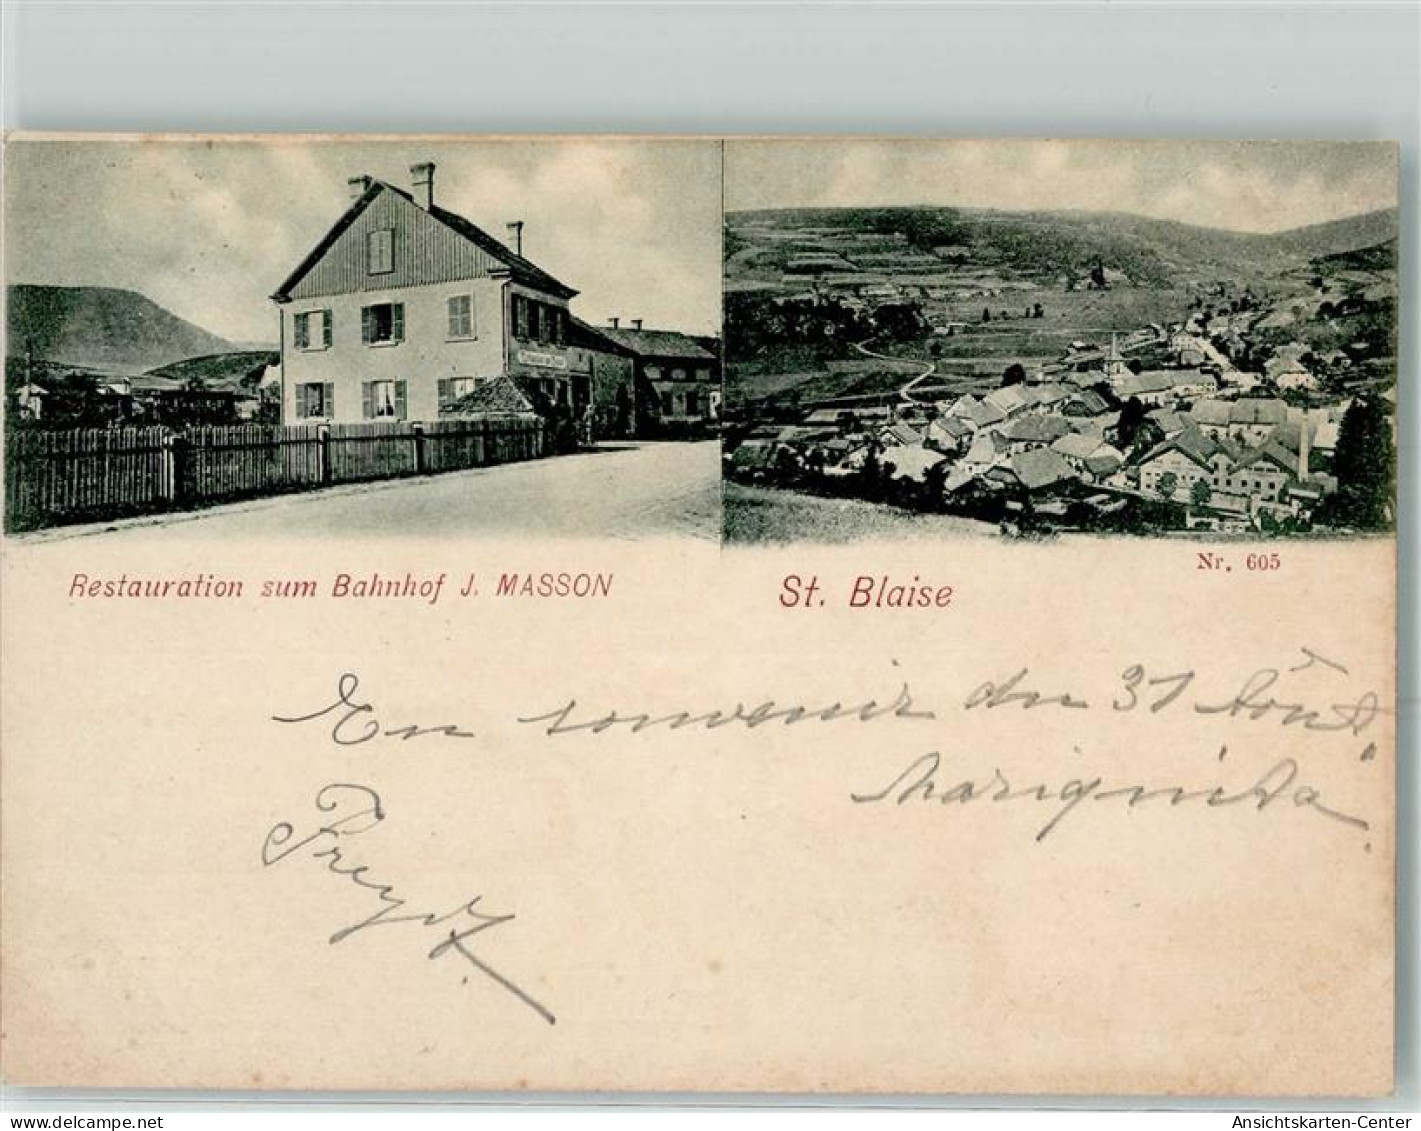 Restauration sum Bahnhof J. MASSON
St. Blaise
Nr. 605
En souvenir du 31 Août.
Mariquita.
Freyd
Ansichtskarten-Center